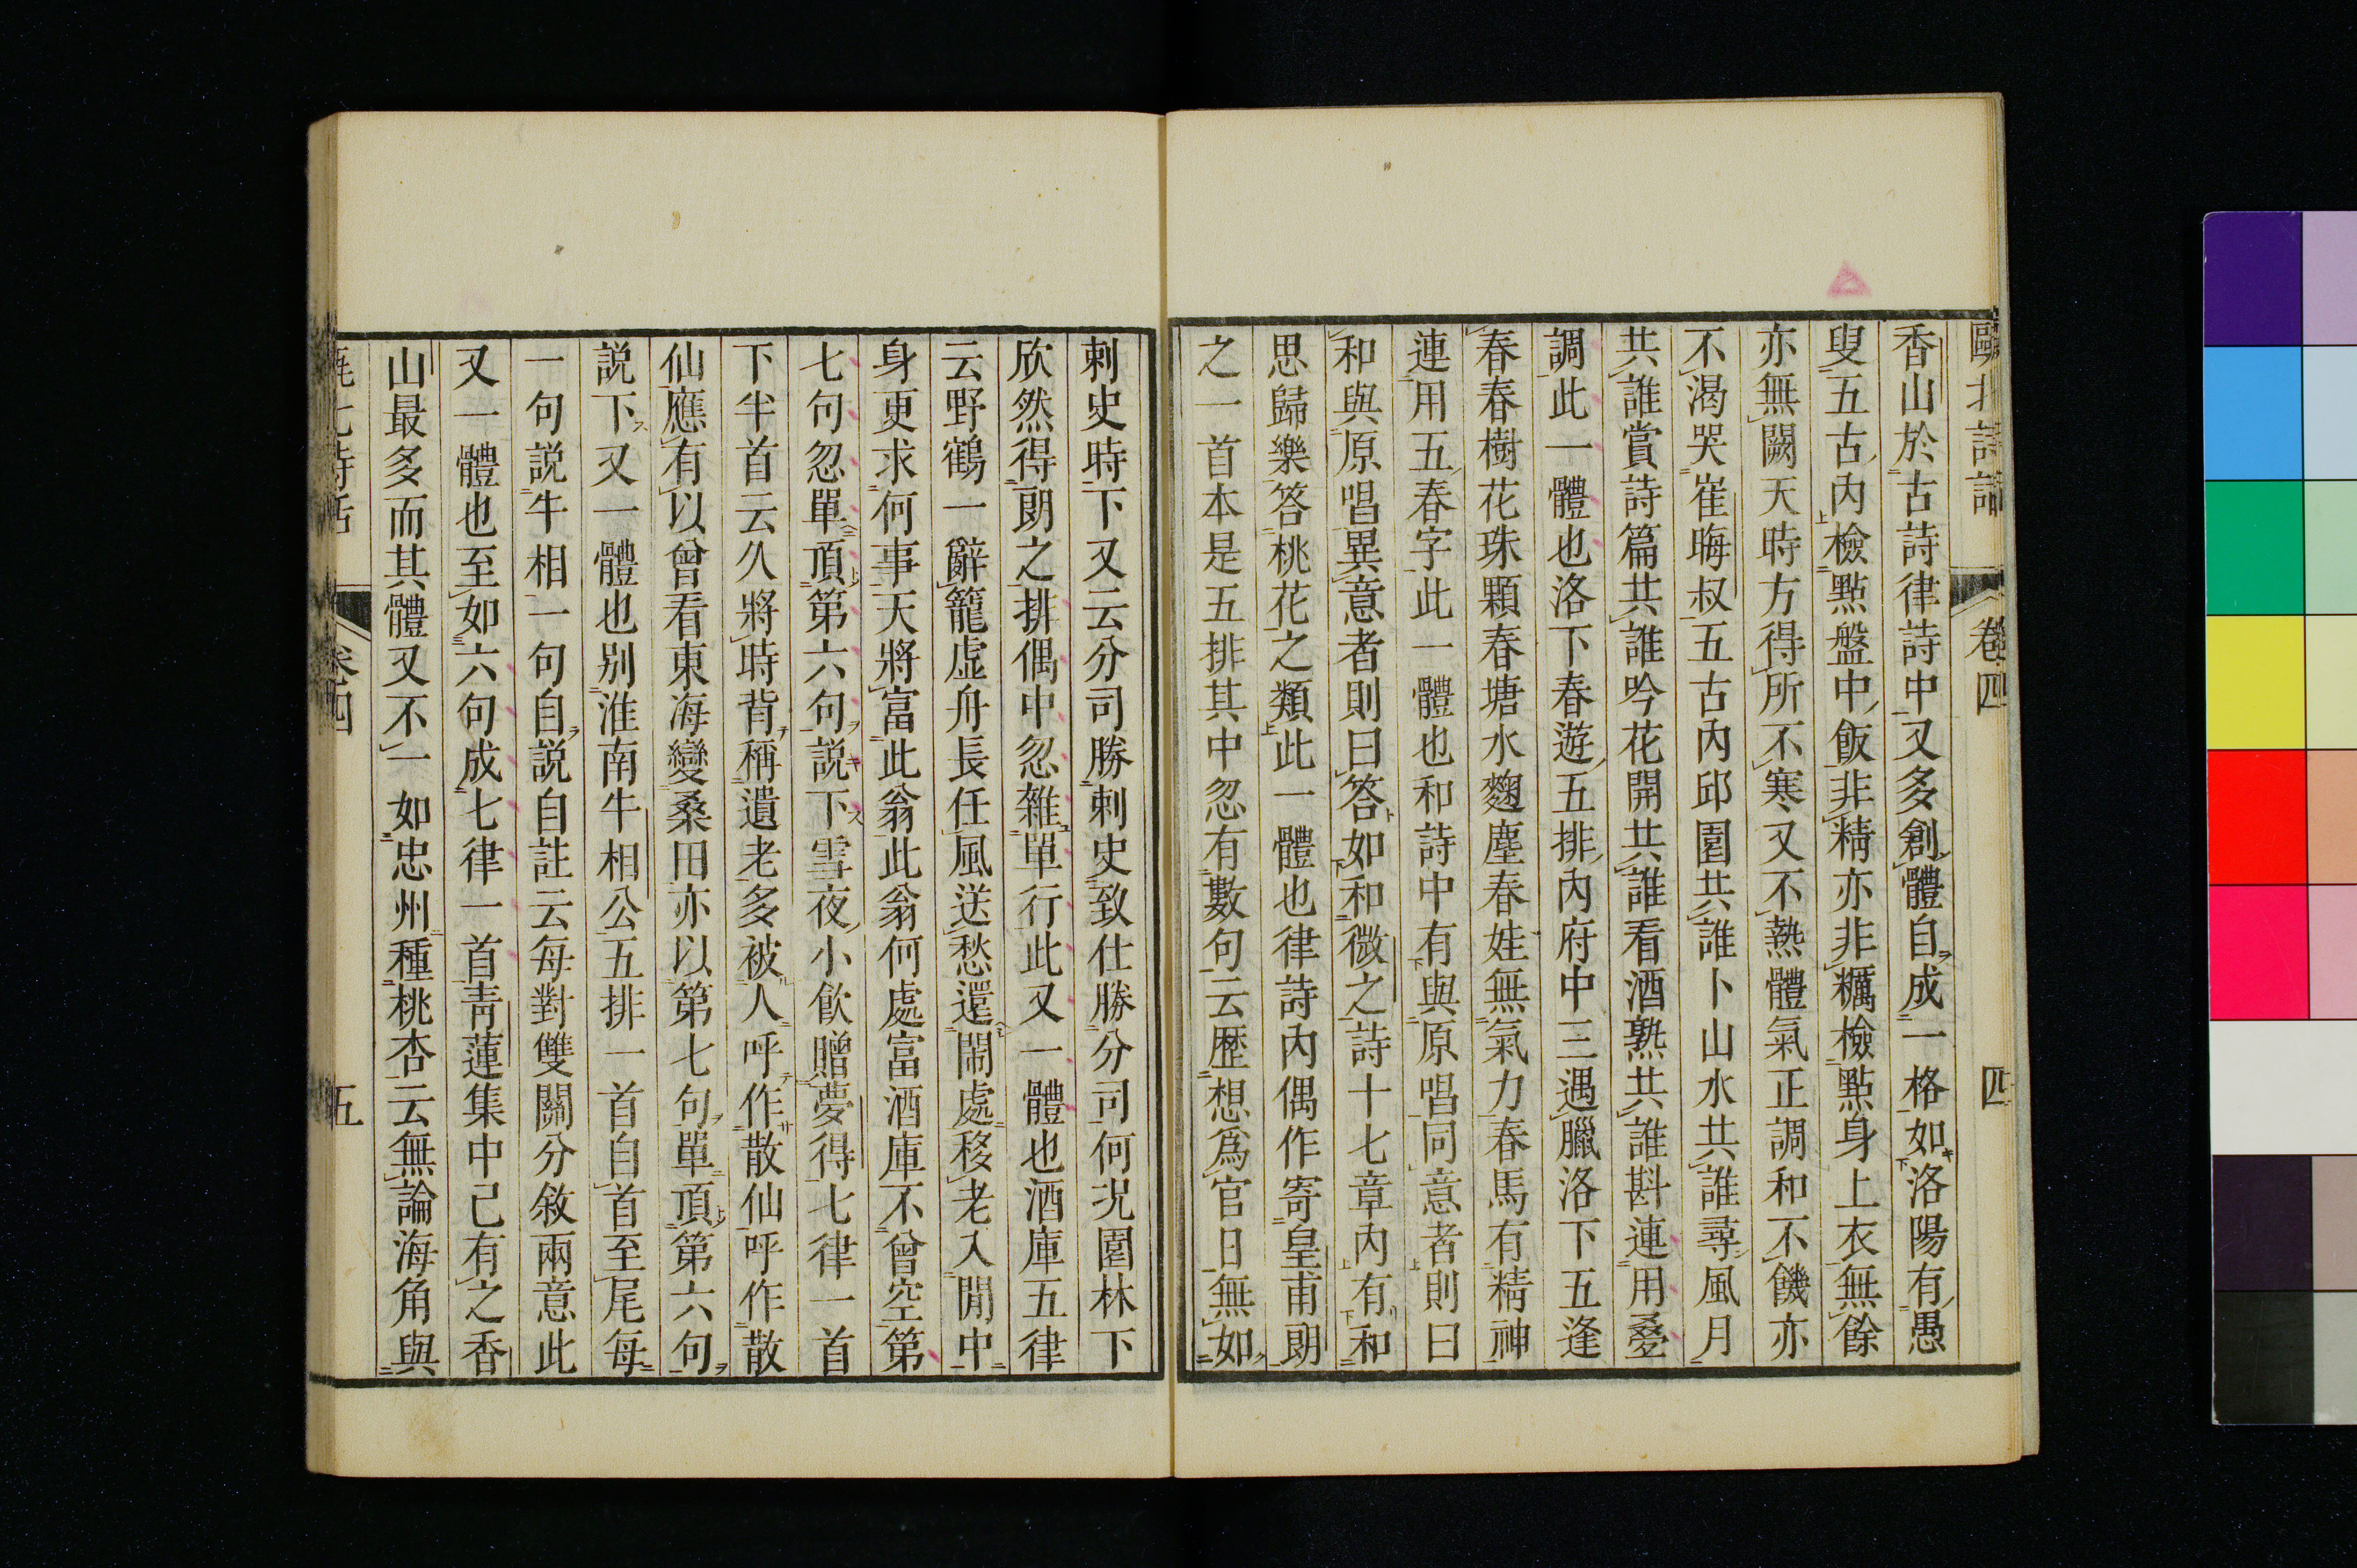 甌北詩話 卷四 四
香山於古詩律詩中又多創體自成一格如洛陽有愚
叟五古內檢點盤中飯非精亦非糲檢點身上衣無餘
亦無闕天時方得所不寒又不熱體氣正調和不饑亦
不渴哭崔晦叔五古內邱園共誰卜山水共誰尋風月
共誰賞詩篇共誰吟花開共誰看酒熟共誰斟連用叠
調此一體也洛下春遊五排內府中三遇臘洛下五逢
春春樹花珠顆春塘水麴塵春娃無氣力春馬有精神
連用五春字此一體也和詩中有與原唱同意者則曰
和與原唱異意者則曰答如和微之詩十七章內有和
思歸樂答桃花之類此一體也律詩內偶作寄皇甫朗
之一首本是五排其中忽有數句云歷想爲官日無如
刺史時下又云分司勝刺史致仕勝分司何況園林下
欣然得朗之排偶中忽雜單行此又一體也酒庫五律
云野鶴一辭籠虛舟長任風送愁還鬧處移老入閒中
身更求何事天將富此翁此翁何處富酒庫不曾空第
七句忽單頂第六句說下雪夜小飲贈夢得七律一首
下半首云久將時背稱遺老多被人呼作散仙呼作散
仙應有以曾看東海變桑田亦以第七句單頂第六句
說下又一體也别淮南牛相公五排一首自首至尾每
一句說牛相一句自說自註云每對雙關分敘兩意此
又一體也至如六句成七律一首青蓮集中已有之香
山最多而其體又不一如忠州種桃杏云無論海角與
卷四 五